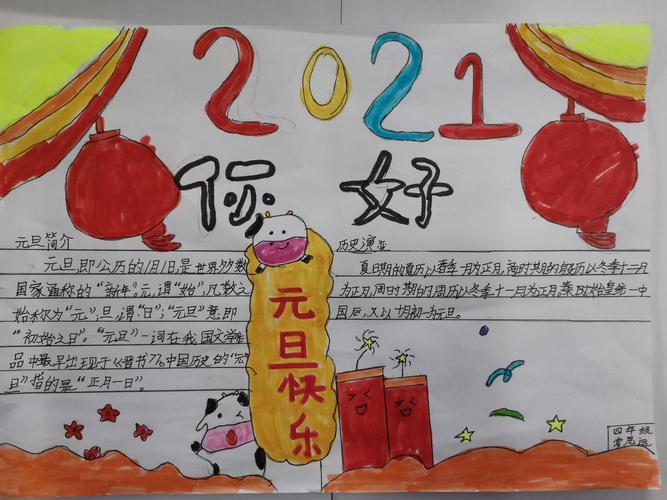 2021
你好
元旦简介
元旦,即公历的1月1日,是世界多数
国家通称的“新年”。元,谓“始”,凡数之
始称为“元”;旦,谓“日”;“元旦”意即
“初始之日”。“元旦”一词在我国文学作
品中最早出现于《晋书》。中国历史的“元
旦”指的是“正月一日”。
元旦快乐
历史演变
夏日期的夏历以春季一月为正月,商时期的殷历以冬季十二月
为正月,周时期的周历以冬季十一月为正月。秦始皇统一中
国后,又以
初一为元旦。
四年级
常思远